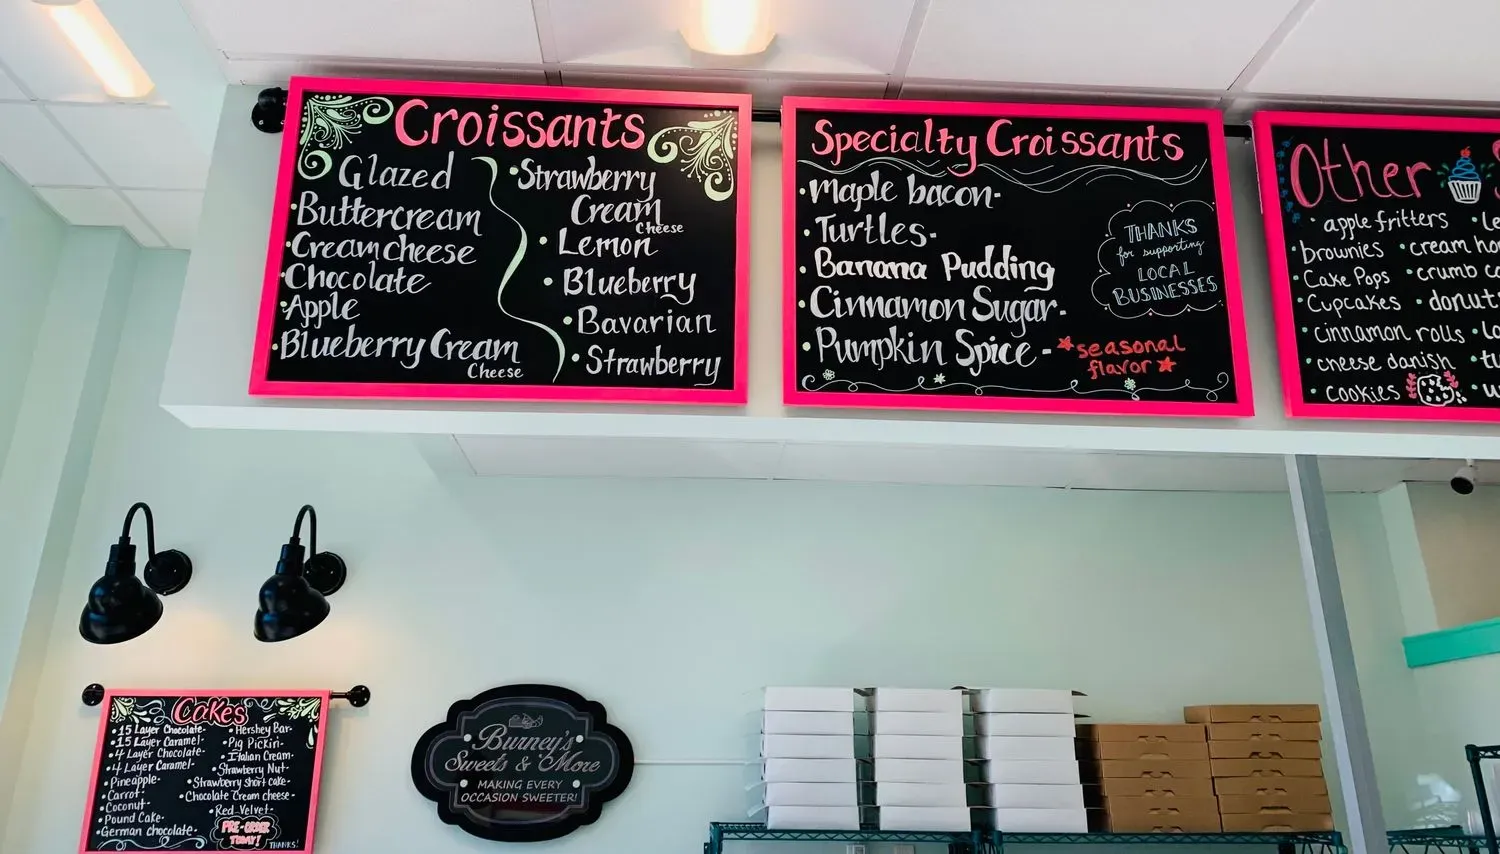 Croissants
Glazed
•Buttercream
•Creamcheese
•Chocolate
•Apple
•Blueberry Cream
Cheese
•Strawberry
Cream
Cheese
•Lemon
•Blueberry
•Bavarian
•Strawberry
Specialty Croissants
•Maple bacon-
•Turtles-
•Banana Pudding
•Cinnamon Sugar-
•Pumpkin Spice-
*seasonal
flavor*
THANKS
for supporting
LOCAL
BUSINESSES
Other
•apple fritters
•brownies •cream
•Cake Pops •crumb
•Cupcakes
•cinnamon rolls
•cheese danish
•cookies
Cakes
•15 Layer Chocolate-
•15 Layer Caramel-
•4 Layer Chocolate-
•4 Layer Caramel-
•Pineapple-
•Carrot-
•Coconut-
•Pound Cake-
•German chocolate-
•Hershey Bar-
•Pig Pickin-
•Italian Cream-
•Strawberry Nut-
•Strawberry short cake-
•Chocolate Cream cheese-
•Red Velvet-
PRE-ORDER
TODAY!
THANKS!
Burney's
Sweets & More
MAKING EVERY
OCCASION SWEETER!